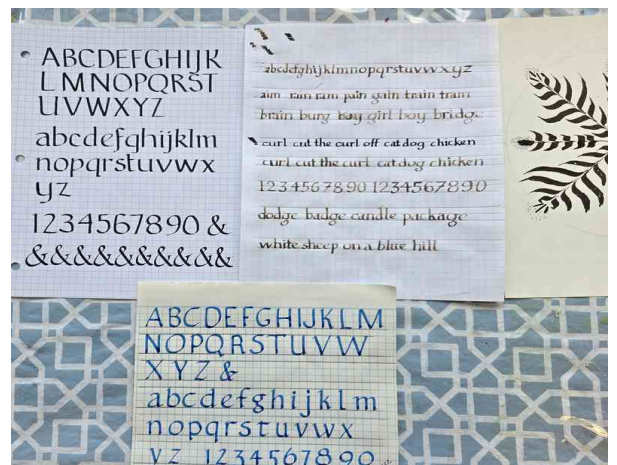 ABCDEFGHIJK
LMNOPQRST
UVWXYZ
abcdefghijklm
nopqrstuvwx
yz
1234567890 &
&&&&&&&&&&
abcdefghijklmnopqrstuvwxyz
aim rain ram pain gain train tram
brain burg boy girl boy bridge
curl cut the curl off cat dog chicken
curl cut the curl cat dog chicken
1234567890 1234567890
dodge badge candle package
white sheep on a blue hill
ABCDEFGHIJKLM
NOPQRSTUVW
XYZ &
abcdefghijklm
nopqrstuvwx
yz 1234567890